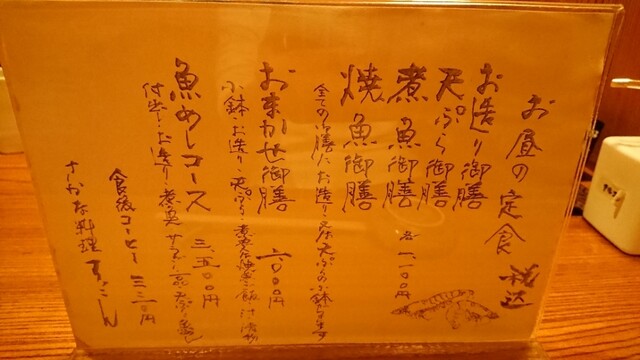 お昼の定食 税込
お造り御膳
天ぷら御膳
煮魚御膳 各 一、一〇〇円
焼魚御膳
全ての御膳にお造り又は天ぷらの小鉢付きます
おまかせ御膳
小鉢・お造り・天ぷら・煮魚又は焼魚・ご飯・汁・漬物
魚めしコース 三、五〇〇円
付出し・お造り・煮魚
食後コーヒー 三三〇円
さかな料理